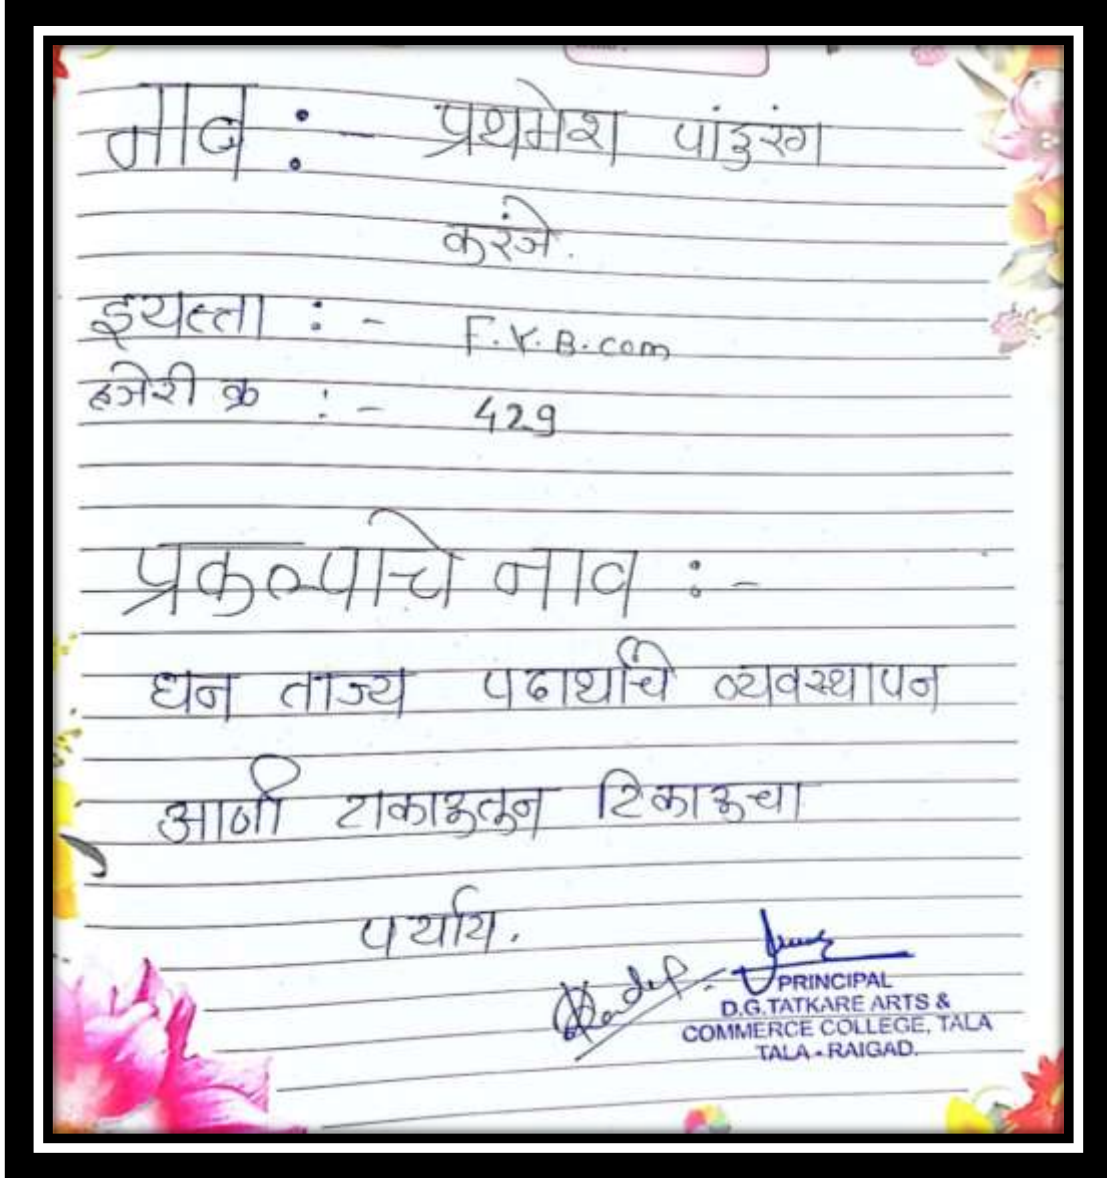 नाव :- प्रथमेश पांडुरंग
करंजे.
इयत्ता :- F.Y.B.com
हजेरी क्र :- 429
प्रकल्पाचे नाव :-
घन ताज्य पदार्थाचे व्यवस्थापन
आणी टाकाऊतून टिकाऊचा
पर्याय.
PRINCIPAL
D.G.TATKARE ARTS &
COMMERCE COLLEGE, TALA
TALA - RAIGAD.